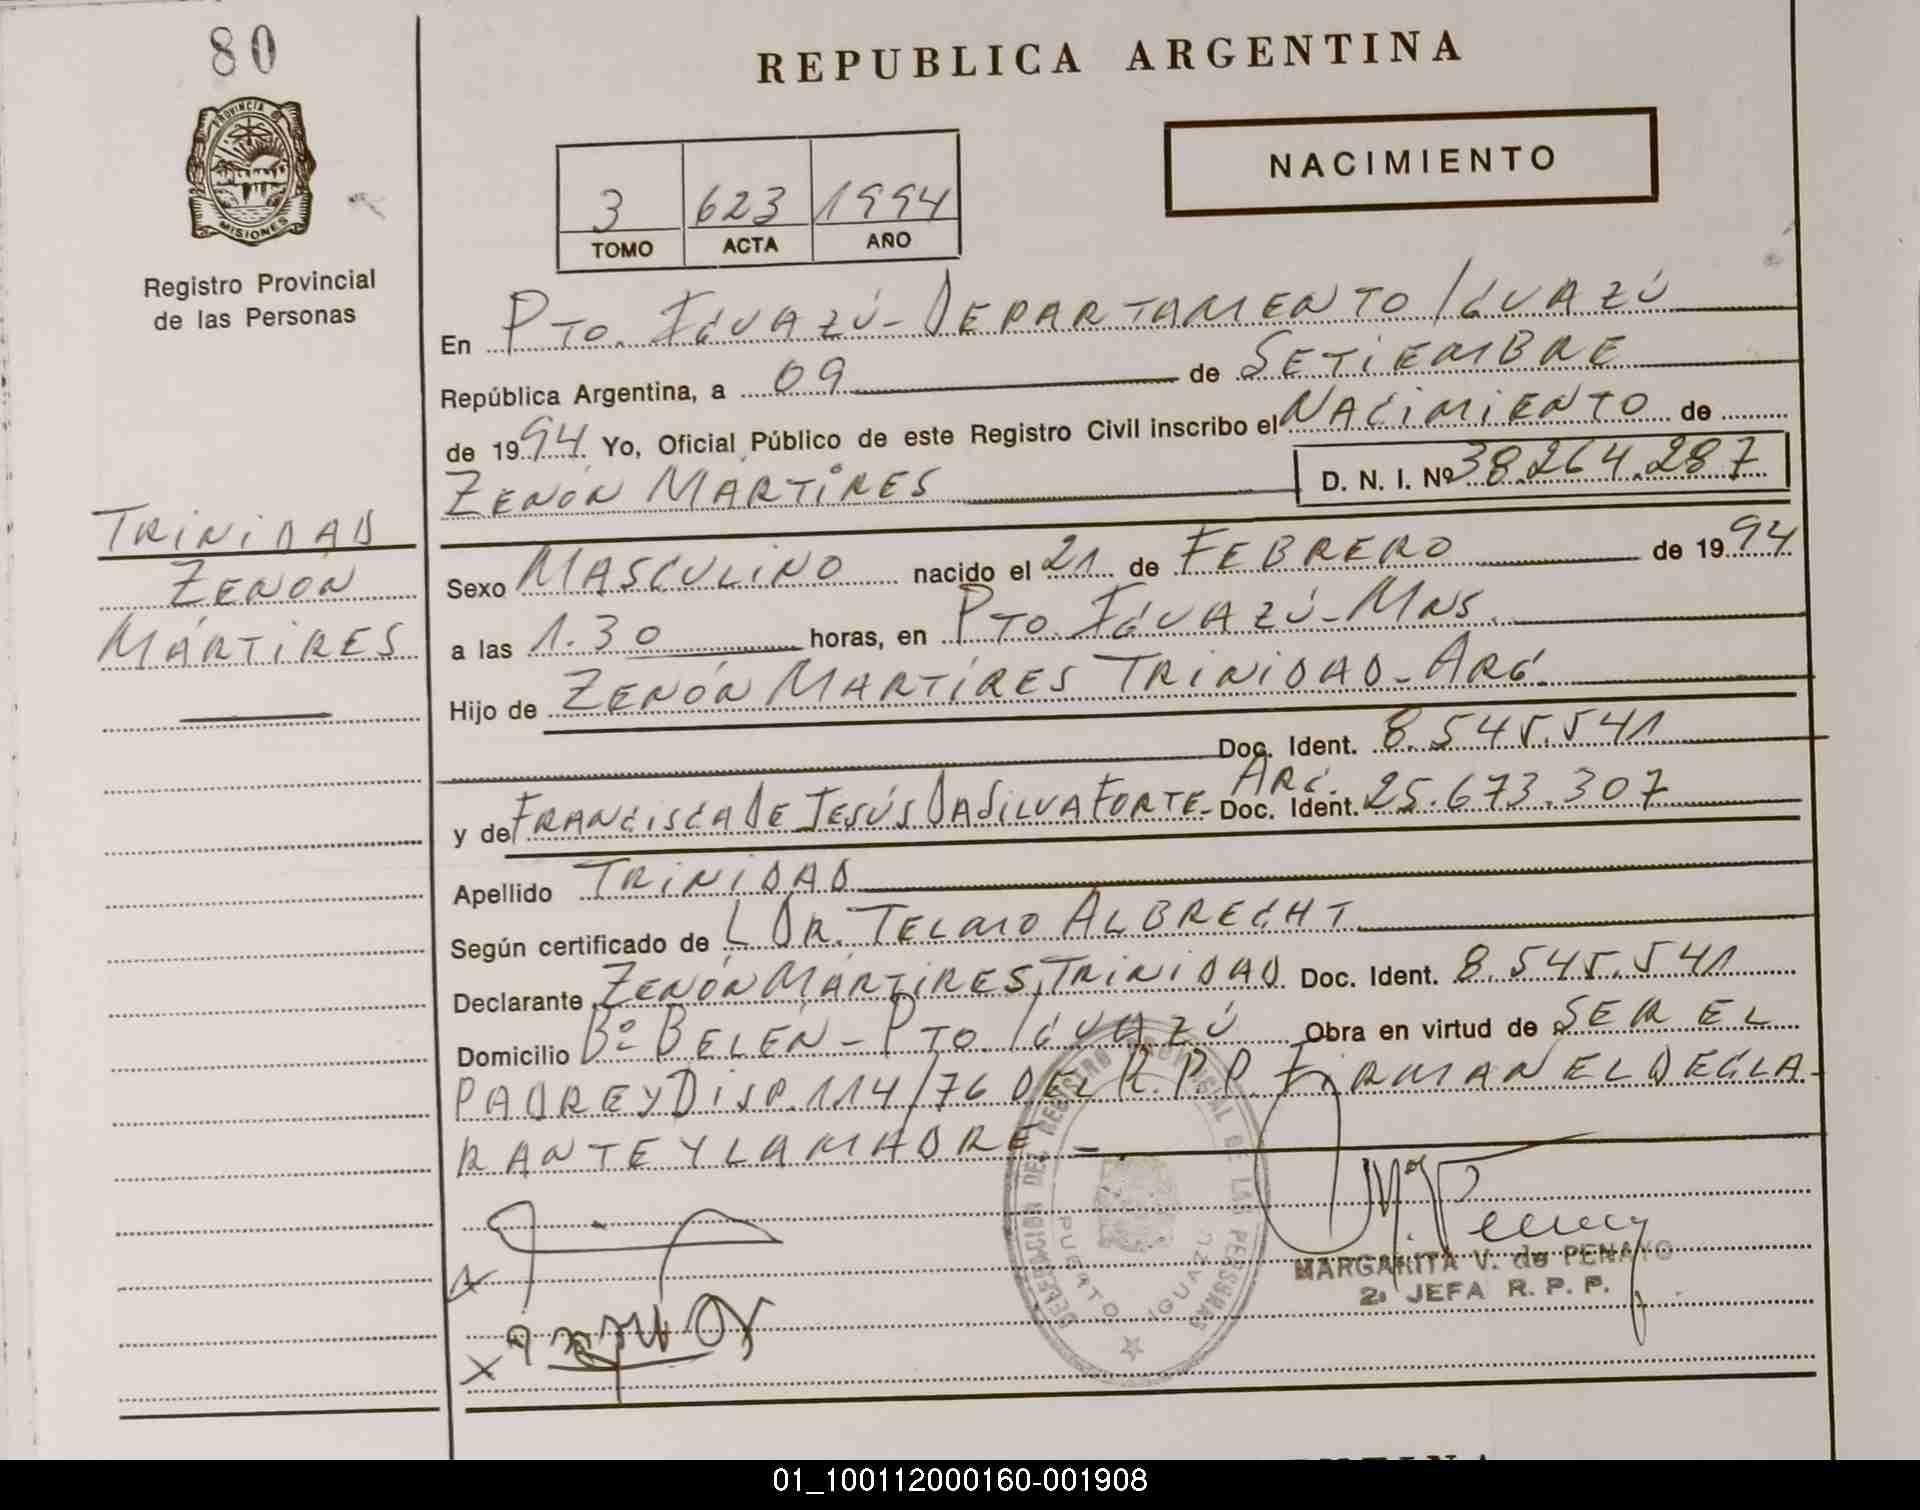 80
REPUBLICA ARGENTINA
PROVINCIA
MISIONES
Registro Provincial
de las Personas
NACIMIENTO
3 623 1994
TOMO ACTA AÑO
En Pto. Iguazú - Departamento Iguazú
República Argentina, a 09 de Setiembre
de 1994 Yo, Oficial Público de este Registro Civil inscribo el Nacimiento de
Zenón Mártires D. N. I. Nº 38.264.287
Trinidad
Zenón
Mártires
Sexo Masculino nacido el 21 de Febrero de 1994
a las 1.30 horas, en Pto. Iguazú - Mns.
Hijo de Zenón Martíres Trinidad - Arg.
Doc. Ident. 8.545.541
y de Francisca de Jesús Da Silva Forte - Arg. Doc. Ident. 25.673.307
Apellido Trinidad
Según certificado de L Dr. Telmo Albrecht
Declarante Zenón Mártires Trinidad Doc. Ident. 8.545.541
Domicilio Bº Belén - Pto Iguazú Obra en virtud de ser el
padre y Disp. 114/76 del R.P.P. Firman el decla-
rante y la madre
DELEGACION DEL REGISTRO PROVINCIAL DE LAS PERSONAS
PUERTO IGUAZU
MARGARITA V. de PENAYO
2ª JEFA R. P. P.
01_100112000160-001908